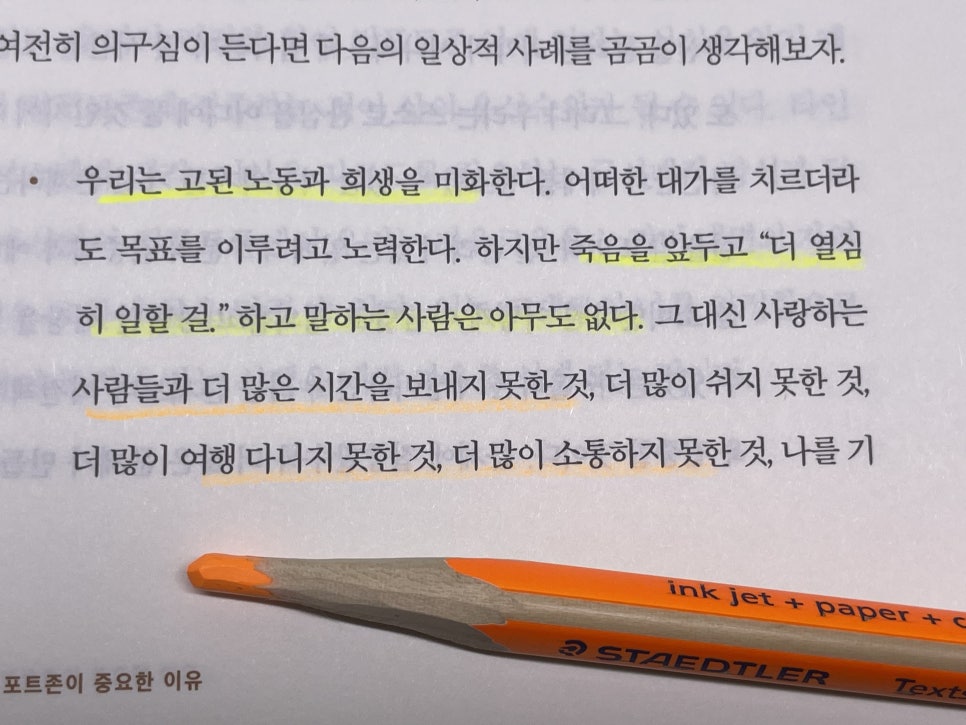 여전히 의구심이 든다면 다음의 일상적 사례를 곰곰이 생각해보자.
• 우리는 고된 노동과 희생을 미화한다. 어떠한 대가를 치르더라
도 목표를 이루려고 노력한다. 하지만 죽음을 앞두고 “더 열심
히 일할 걸.” 하고 말하는 사람은 아무도 없다. 그 대신 사랑하는
사람들과 더 많은 시간을 보내지 못한 것, 더 많이 쉬지 못한 것,
더 많이 여행 다니지 못한 것, 더 많이 소통하지 못한 것, 나를 기
ink jet + paper + c
STAEDTLER Texts
포트존이 중요한 이유